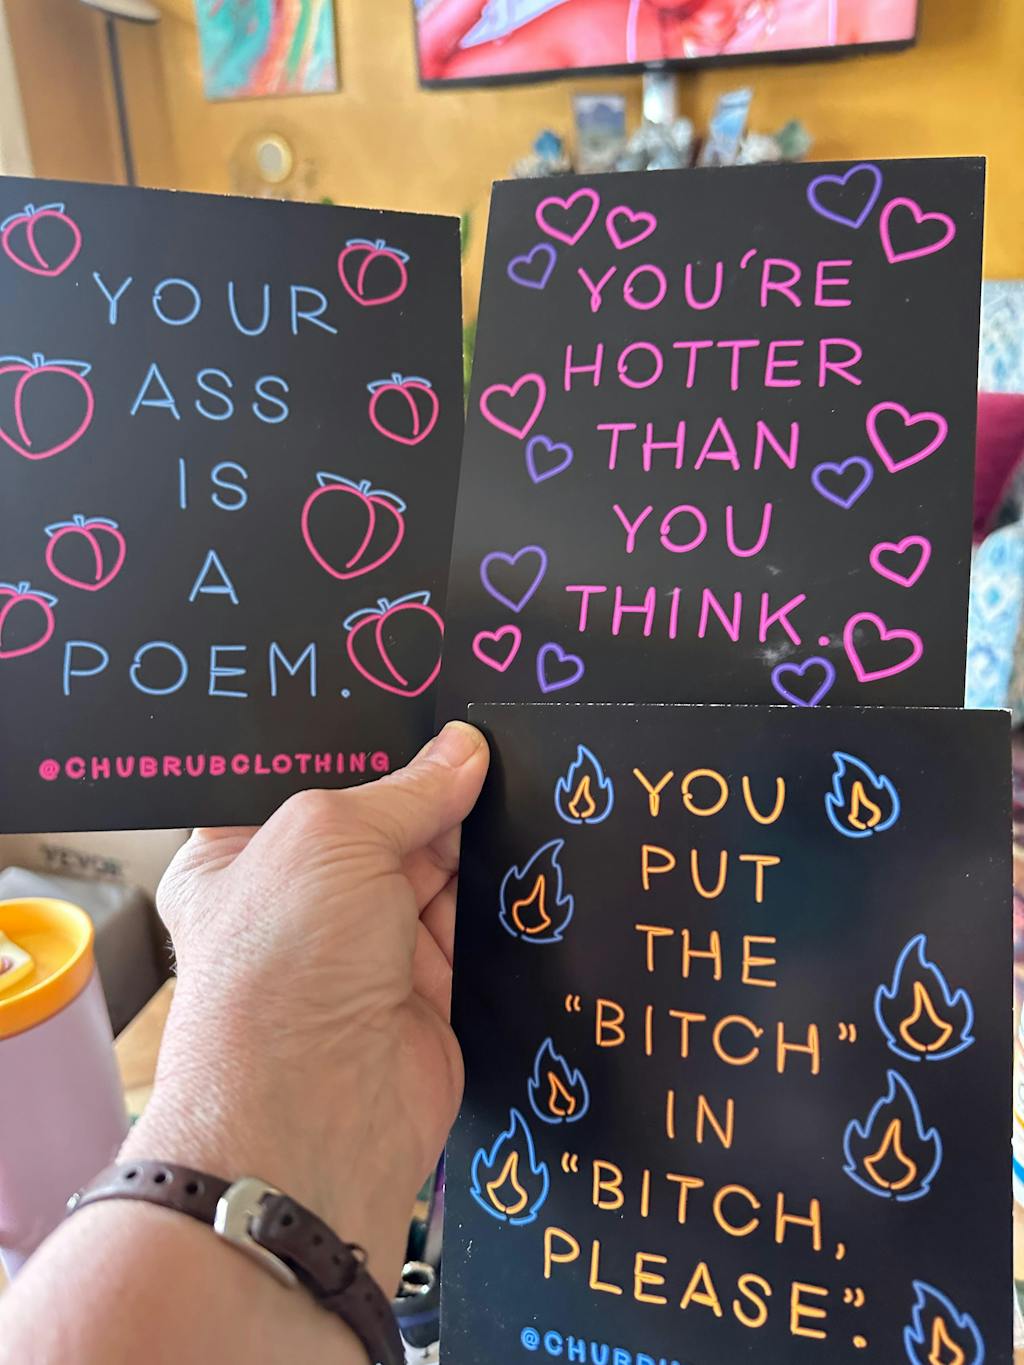 YOUR
ASS
IS
A
POEM.
@CHUBRUBCLOTHING
YOU'RE
HOTTER
THAN
YOU
THINK.
YOU
PUT
THE
"BITCH"
IN
"BITCH,
PLEASE".
VEVOR